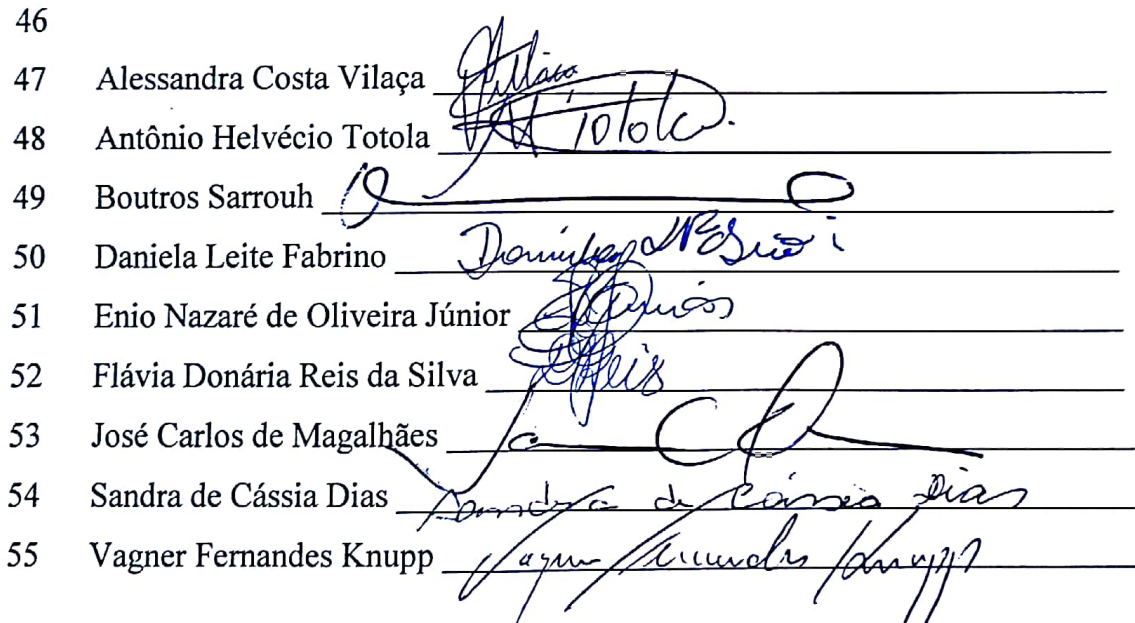 46
47 Alessandra Costa Vilaça Vilaça
48 Antônio Helvécio Totola Totola.
49 Boutros Sarrouh
50 Daniela Leite Fabrino
51 Enio Nazaré de Oliveira Júnior
52 Flávia Donária Reis da Silva Reis
53 José Carlos de Magalhães
54 Sandra de Cássia Dias Sandra de Cássia Dias
55 Vagner Fernandes Knupp Vagner Fernandes Knupp